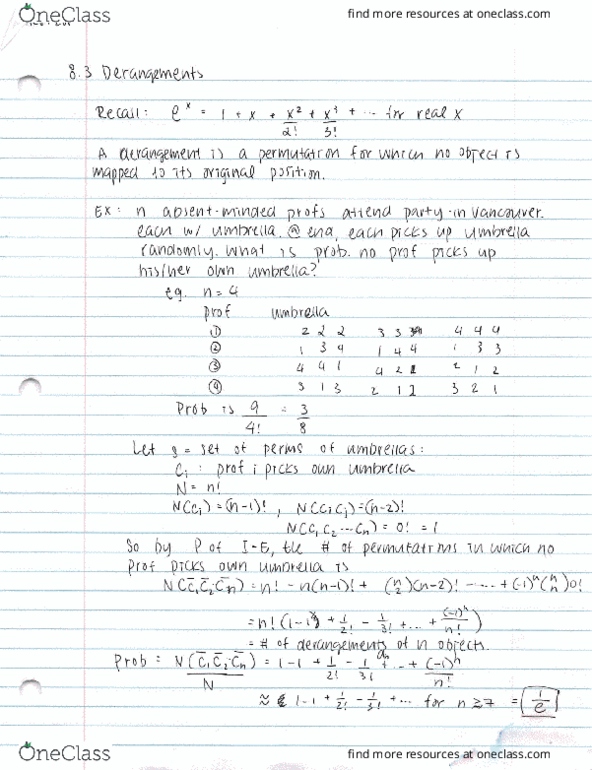 OneClass
find more resources at oneclass.com
8.3 Derangements
Recall: e^x = 1 + x + x²/2! + x³/3! + ... for real x
A derangement is a permutation for which no object is
mapped to its original position.
Ex: n absent-minded profs attend party in Vancouver.
each w/ umbrella. @ end, each picks up umbrella
randomly. What is prob. no prof picks up
his/her own umbrella?
eg. n=4
prof umbrella
① 2 2 2 3 3 3 4 4 4
② 1 3 4 1 4 4 1 3 3
③ 4 4 1 4 2 1 2 1 2
④ 3 1 3 2 1 2 3 2 1
Prob is 9/4! = 3/8
Let = set of perms of umbrellas:
Ci : prof i picks own umbrella
N = n!
N(Ci) = (n-1)! , N(CiCj) = (n-2)!
N(C1 C2 ... Cn) = 0! = 1
So by P of I-E, the # of permutations in which no
prof picks own umbrella is
N(C̄1C̄2C̄n) = n! - n(n-1)! + (n 2)(n-2)! - ... + (-1)^n (n n) 0!
= n! (1-1 + 1/2! - 1/3! + ... + (-1)^n/n!)
= # of derangements of n objects.
dn
Prob = N(C̄1C̄2C̄n)/N = 1-1 + 1/2! - 1/3! + ... + (-1)^n/n!
≈ 1-1 + 1/2! - 1/3! + ... for n ≥ 7 = 1/e
OneClass
find more resources at oneclass.com